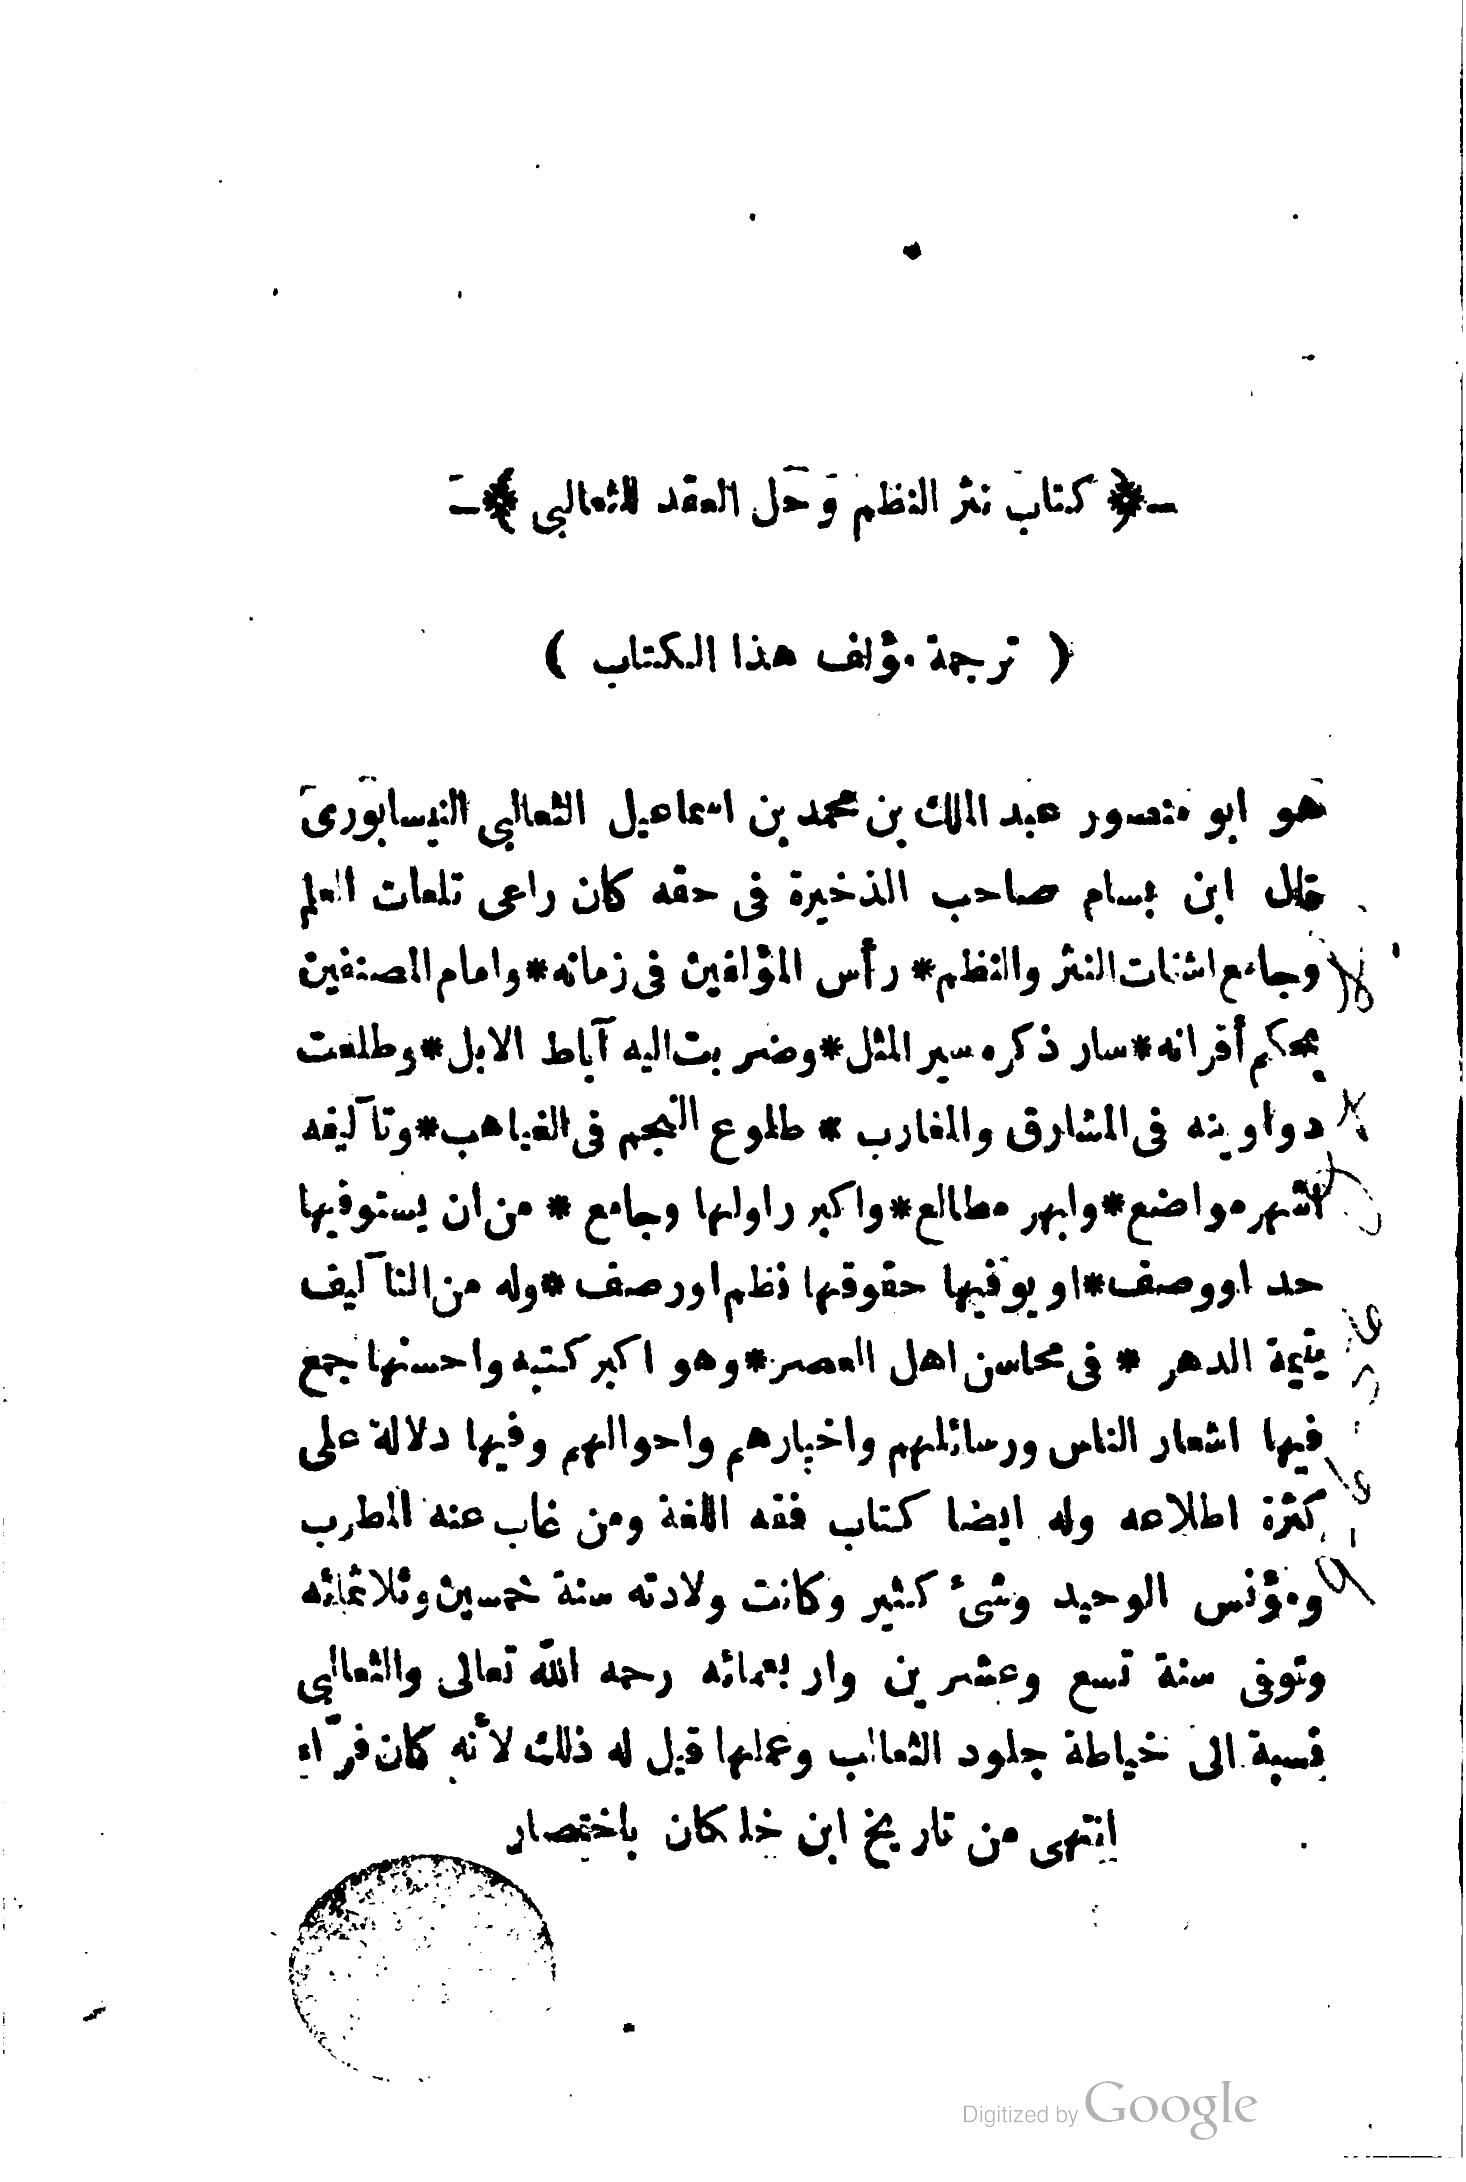 ﴿ كتاب نثر النظم وحل العقد للثعالبي ﴾
( ترجمة مؤلف هذا الكتاب )
هو ابو منصور عبد الملك بن محمد بن اسماعيل الثعالبي النيسابورى
قال ابن بسام صاحب الذخيرة فى حقه كان راعى تلعات العلم
وجامع اشتات النثر والنظم * رأس المؤلفين فى زمانه * وامام المصنفين
بحكم أقرانه * سار ذكره سير المثل * وضربت اليه آباط الابل * وطلعت
دواوينه فى المشارق والمغارب * طلوع النجم فى الغياهب * وتآليفه
اشهر مواضع * وابهر مطالع * واكبر راو لها وجامع * من ان يستوفيها
حد او وصف * او يوفيها حقوقها نظم او رصف * وله من التآليف
يتيمة الدهر * فى محاسن اهل العصر * وهو اكبر كتبه واحسنها جمع
فيها اشعار الناس ورسائلهم واخبارهم واحوالهم وفيها دلالة على
كثرة اطلاعه وله ايضا كتاب فقه اللغة ومن غاب عنه المطرب
ومؤنس الوحيد وشئ كثير وكانت ولادته سنة خمسين وثلاثمائه
وتوفى سنة تسع وعشرين واربعمائه رحمه الله تعالى والثعالبي
نسبة الى خياطة جلود الثعالب وعملها قيل له ذلك لأنه كان فرّاء
انتهى من تاريخ ابن خلكان باختصار
Digitized by Google